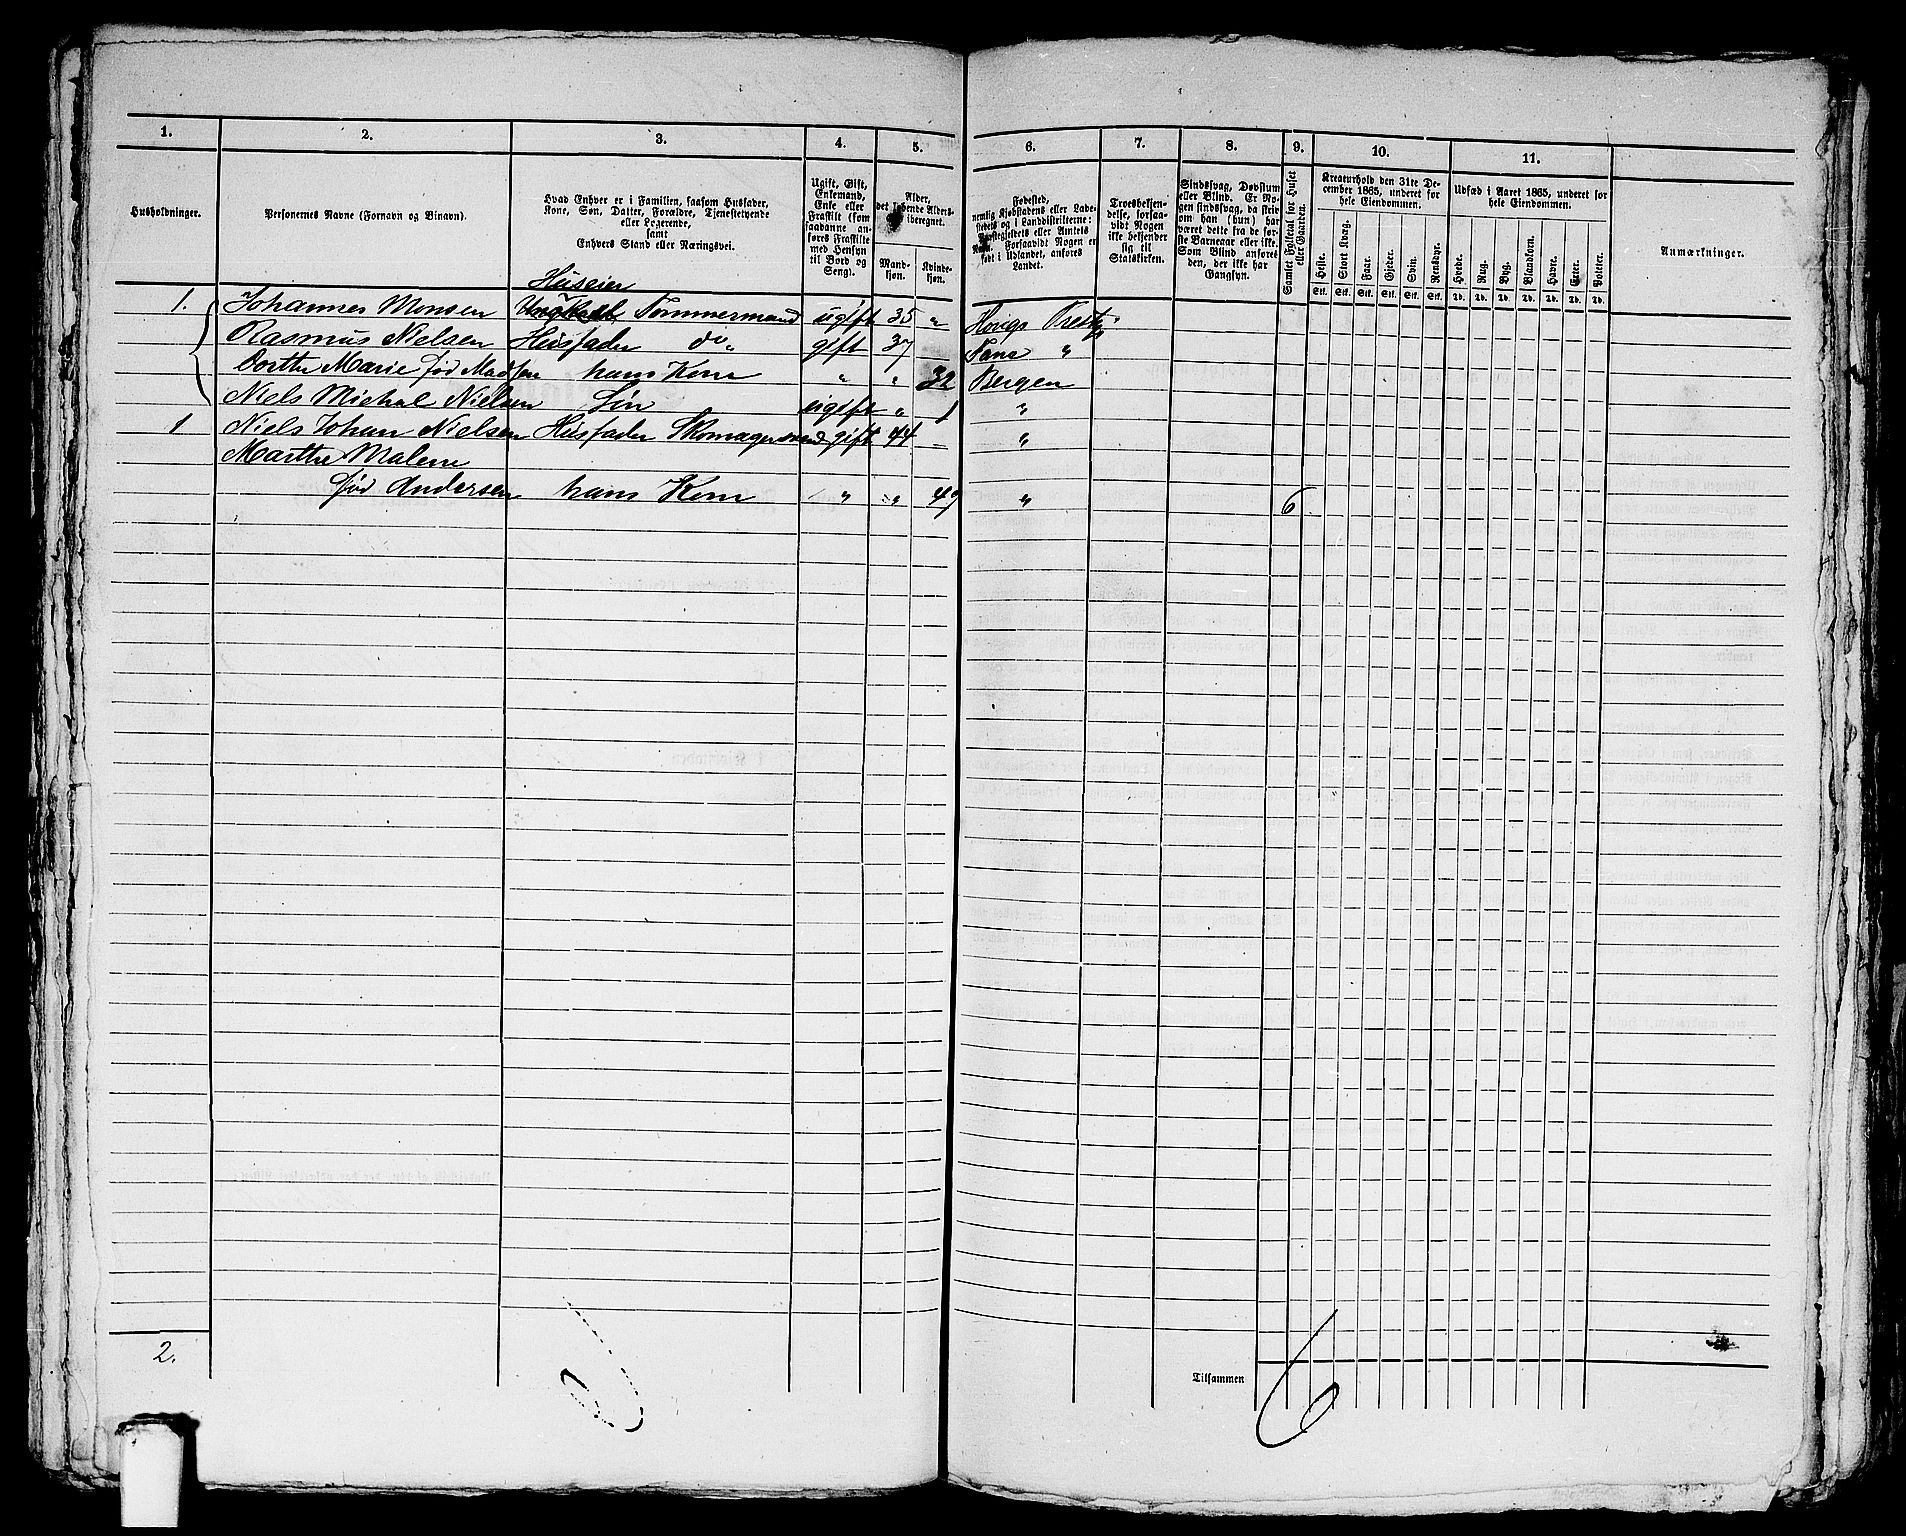 1. 2. 3. 4. 5. 6. 7. 8. 9. 10. 11.
Husholdninger.
Personernes Navne (Fornavn og Binavn).
Hvad Enhver er i Familien, saasom Husfader,
Kone, Søn, Datter, Forældre, Tjenestetyende
eller Logerende,
samt
Enhvers Stand eller Næringsvei.
Ugift, Gift,
Enkemand,
Enke eller
Fraskilt (som
saadanne an-
føres Fraskilte
med Hensyn
til Bord og
Seng).
Alder,
det løbende Alders-
aar iberegnet.
Mand-
kjøn.
Kvinde-
kjøn.
Fødested,
nemlig Kjøbstadens eller Lade-
stedets og i Landdistrikterne:
Præstegjeldets eller Amtets
Navn. Forsaavidt Nogen er
født i Udlandet, anføres
Landet.
Troesbekjen-
delse, forsaa-
vidt Nogen
ikke bekjender
sig til
Statskirken.
Sindssvag, Døvstum
eller Blind. Er No-
gen sindssvag, da skrives
om han (hun) har
været dette fra de før-
ste Barneaar eller ikke.
Som Blind anføres
den, der ikke har
Gangsyn.
Samlet Folketal for Huset
eller Gaarden.
Kreaturhold den 31te De-
cember 1865, underet for
hele Eiendommen.
Heste. Stort Kvæg. Faar. Gjeder. Svin. Rensdyr.
Stk. Stk. Stk. Stk. Stk. Stk.
Udsæd i Aaret 1865, underet for
hele Eiendommen.
Hvede. Rug. Byg. Blandkorn. Havre. Erter. Poteter.
Td. Td. Td. Td. Td. Td. Td.
Anmærkninger.
Huseier
1. Johannes Monsen Tømmermand ugift 35 „
Rasmus Nielsen Husfader do „ gift 37 Fane „
Dorthe Marie fød Madsen hans Kone „ „ 32 Bergen
Niels Michal Nielsen Søn ugift „ 1 „
1 Niels Johan Nielsen Husfader Skomagersvend gift 44 „
Marthe Malene
fød Andersen hans Kone „ „ 49 „ 6
2.
6
Tilsammen 6